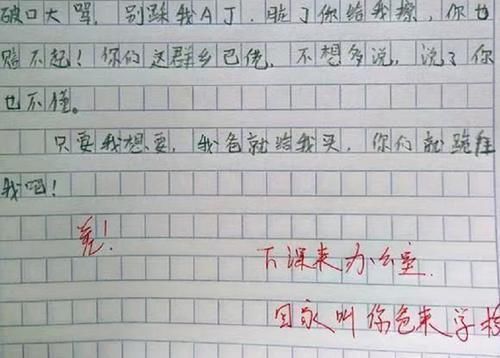 破口大骂，别踩我AJ，脏了你给我擦，你也
赔不起！你们这群乡巴佬，不想多说，说了你
也不懂。
只要我想要，我爸就给我买，你们就跪拜
我吧！
差！
下课来办公室.
回家叫你爸来学校